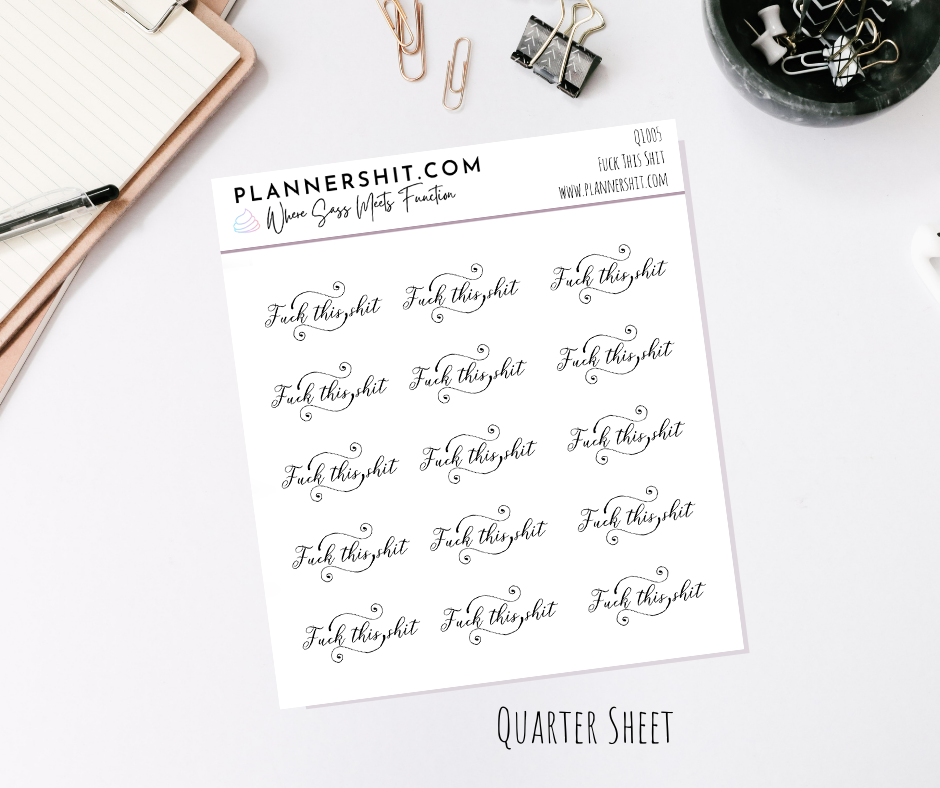 PLANNERSHIT.COM
Where Sass Meets Function
Q1005
Fuck This Shit
www.plannershit.com
Fuck this shit
Fuck this shit
Fuck this shit
Fuck this shit
Fuck this shit
Fuck this shit
Fuck this shit
Fuck this shit
Fuck this shit
Fuck this shit
Fuck this shit
Fuck this shit
Fuck this shit
Fuck this shit
Fuck this shit
Quarter Sheet